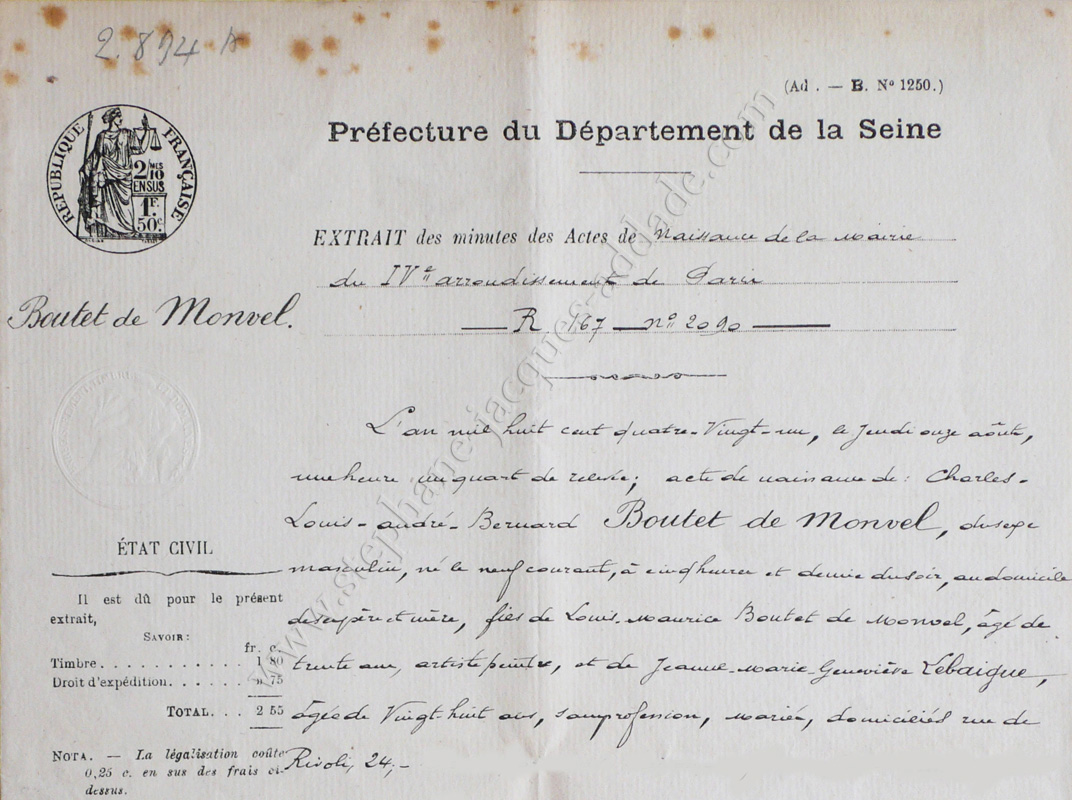 2.894 A
(Ad. — B. Nº 1250.)
Préfecture du Département de la Seine
RÉPUBLIQUE FRANÇAISE
2/10 MES
EN SUS
1F.
50c.
EXTRAIT des minutes des Actes de Naissance de la Mairie
du IVe arrondissement de Paris
Boutet de Monvel.
R 167 — nº 2090
L'an mil huit cent quatre-Vingt-un, le Jeudi onze août,
une heure un quart de relevée; acte de naissance de: Charles-
Louis-André-Bernard Boutet de Monvel, du sexe
masculin, né le neuf courant, à cinq heures et demie du soir, au domicile
de ses père et mère, fils de Louis-Maurice Boutet de Monvel, âgé de
trente ans, artiste peintre, et de Jeanne-Marie-Geneviève Lebaigue,
âgée de Vingt-huit ans, sans profession, mariés, domiciliés rue de
Rivoli, 24,-
ÉTAT CIVIL
Il est dû pour le présent
extrait,
SAVOIR:
fr. c.
Timbre . . . . . . . . . . . . 1 80
Droit d'expédition. . . . . . » 75
TOTAL. . . 2 55
NOTA. — La légalisation coûte
0,25 c. en sus des frais ci-
dessus.
www.stephane-jacques-addade.com